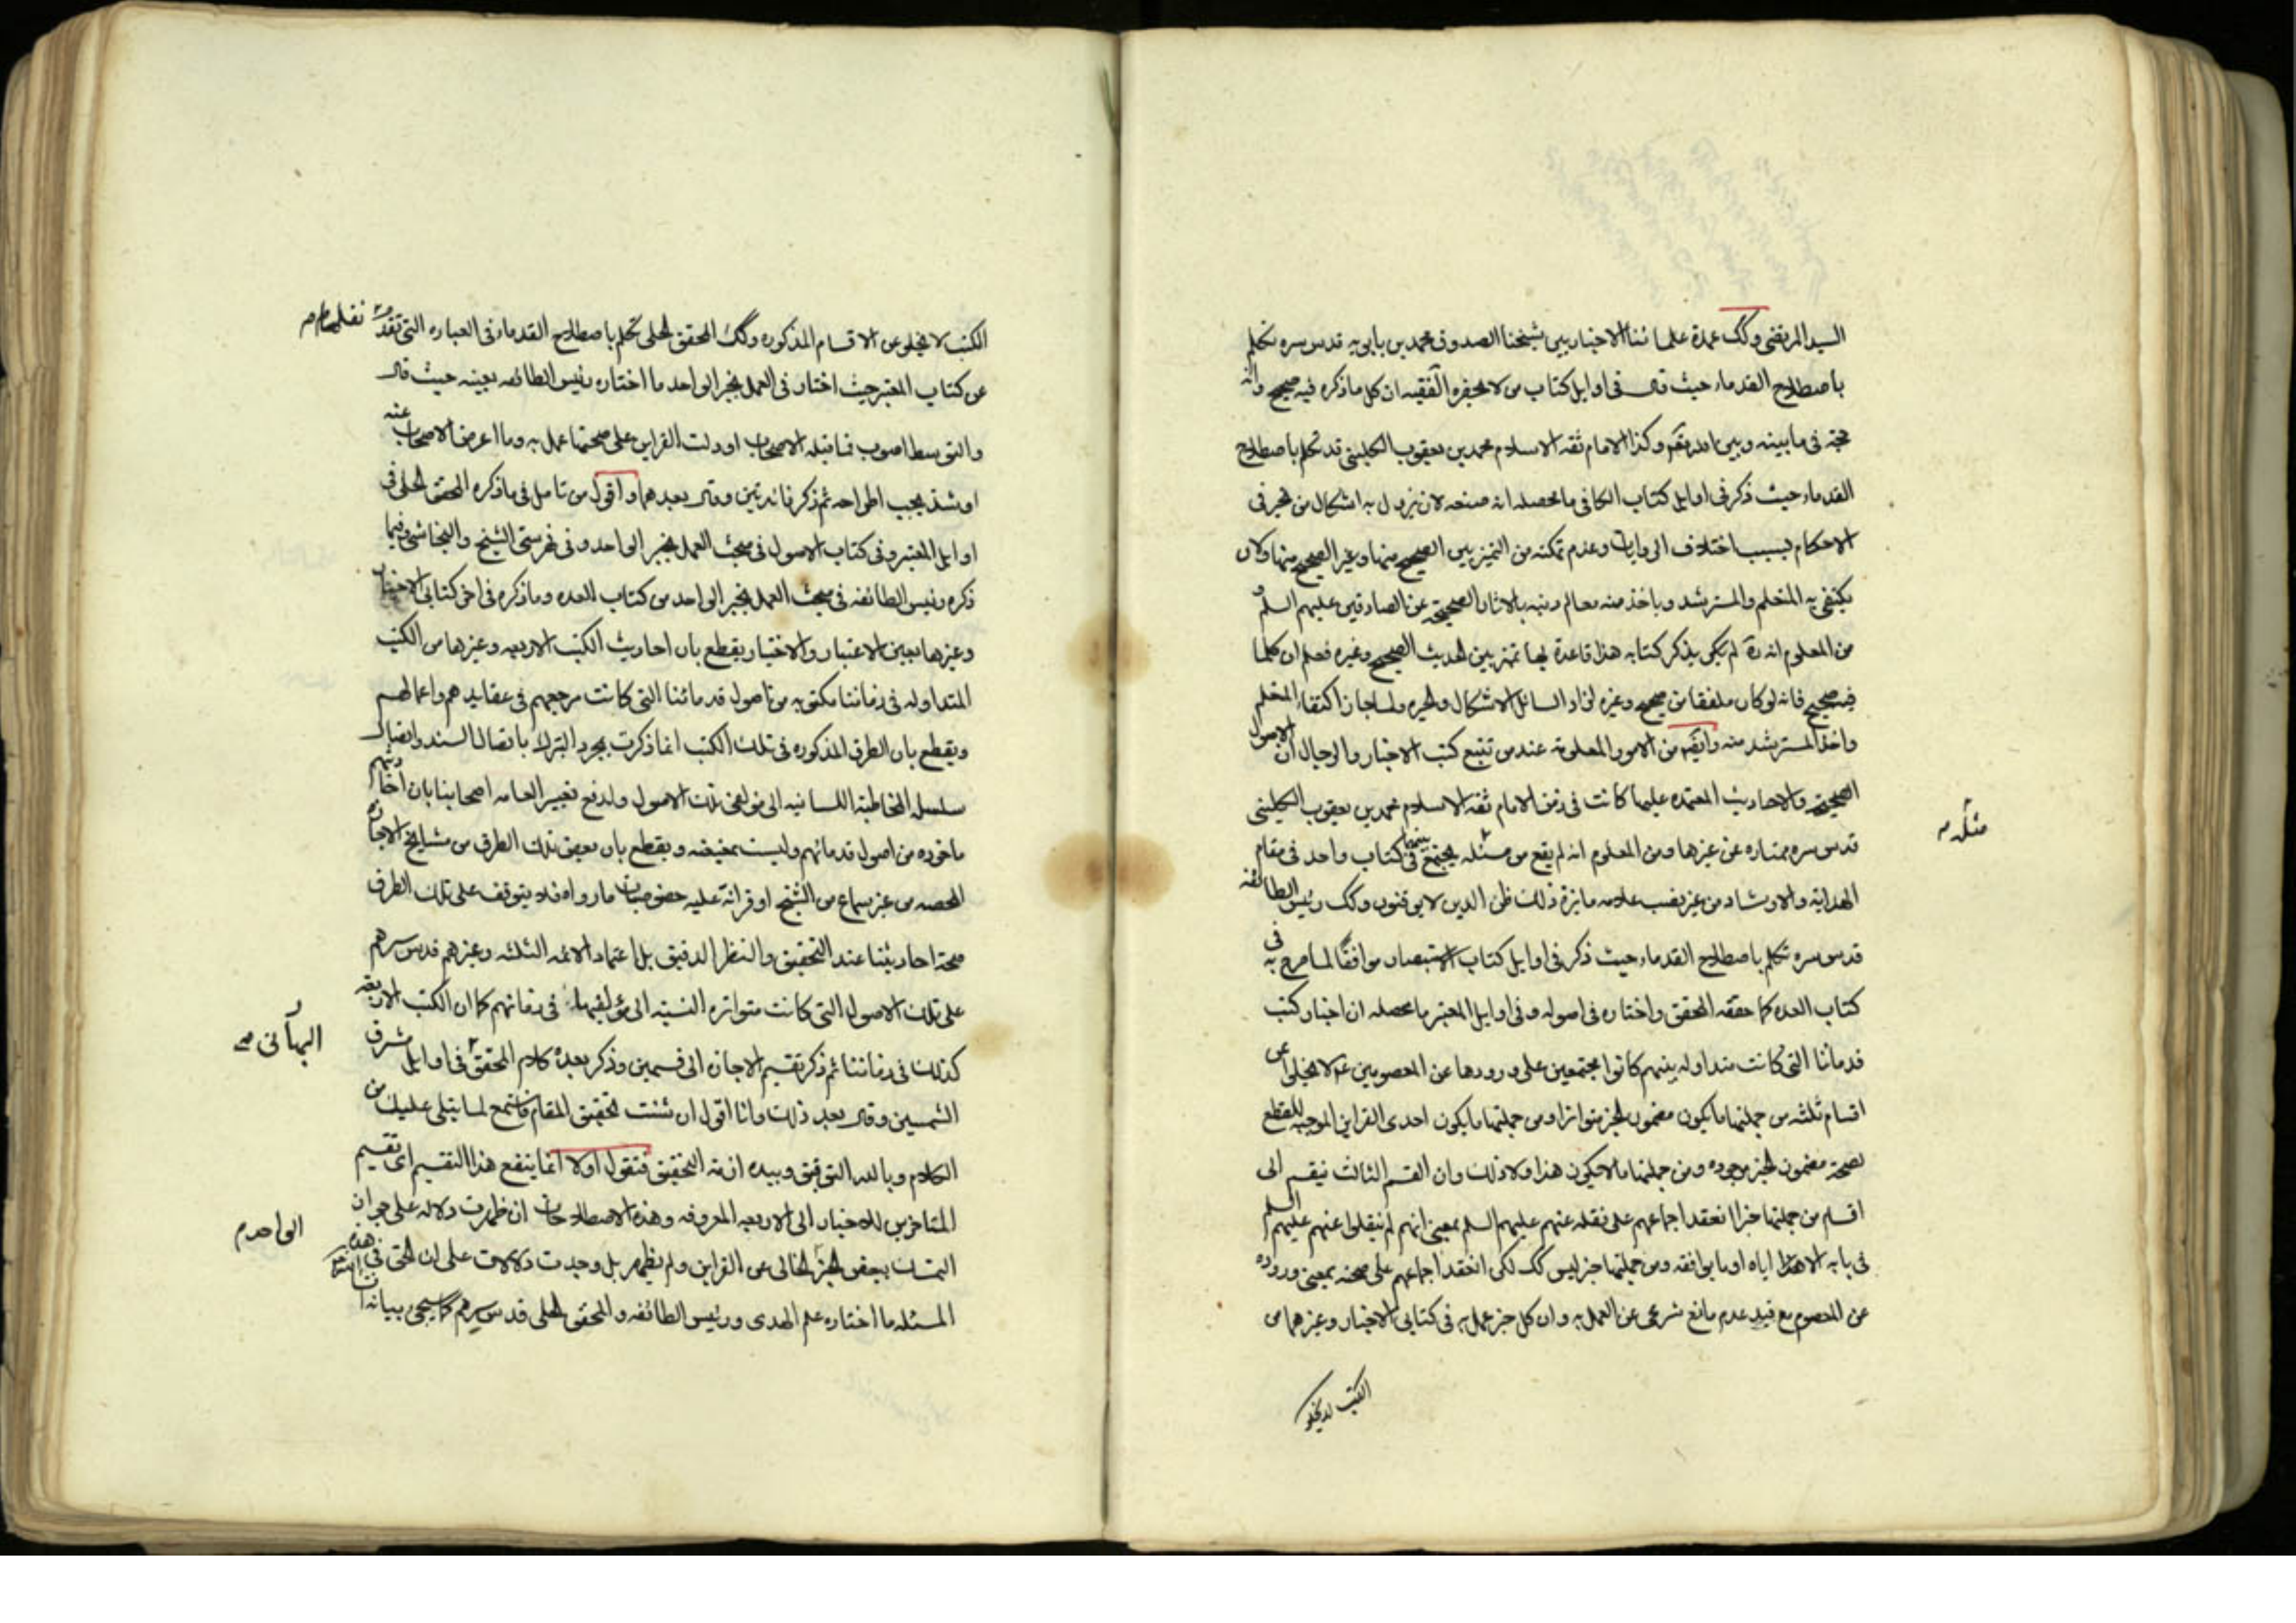 السيد المرتضى وكك عمدة علمائنا الاخباريين شيخنا الصدوق محمد بن بابويه قدس سره تكلم
باصطلاح القدماء حيث قال في اوايل كتاب من لا يحضره الفقيه ان كل ما ذكره فيه صحيح وانه
حجة في ما بينه وبين الله تعم وكذا الامام ثقه الاسلام محمد بن يعقوب الكليني قد تكلم باصطلاح
القدماء حيث ذكر في اوايل كتاب الكافي ما محصله انه صنعه لان يزول به اشكال من تحير في
الاحكام بسبب اختلاف الروايات وعدم تمكنه من التميز بين الصحيح منها وغير الصحيح منها ولان
يكتفى به المتعلم والمسترشد وياخذ منه معالم دينه بالاثار الصحيحة عن الصادقين عليهم السلم و
من المعلوم انه ره لم يكن يذكر كتابه هذا قاعدة بها تميز بين الحديث الصحيح وغيره فعلم ان كلما
فيه صحيح فانه لو كان ملفقا من صحيح وغيره لزاد السائل الاشكال والحيره ولما جاز اكتفاء المتعلم
واخذ المسترشد منه وايضم من الامور المعلومة عند من تتبع كتب الاخبار والرجال ان الاصول
الصحيحة والاحاديث المعتمده عليها كانت في زمن الامام ثقه الاسلام محمد بن يعقوب الكليني
مثله م
قدس سره ممتازه عن غيرها ومن المعلوم انه لم يقع من مثله يجتمع بينهما في كتاب واحد في مقام
الهداية والارشاد من غير نصب علامه مايزة ذلك ظن الذين لا يوقنون وكك رئيس الطائفه
قدس سره تكلم باصطلاح القدماء حيث ذكر في اوايل كتاب الاستبصار موافقا لما صرح به في
كتاب العده كما حققه المحقق واختاره في اصوله وفي اوايل المعتبر ما محصله ان اخبار كتب
قدمائنا التي كانت متداوله بينهم كانوا مجتمعين على ورودها عن المعصومين عم لا يخلوا عن
اقسام ثلثه من جملتها ما يكون مضمون الخبر متواترا ومن جملتها ما يكون احدى القراين الموجبه للقطع
بصحة مضمون الخبر موجوده ومن جملتها ما لا يكون هذا ولا ذلك وان القسم الثالث ينقسم الى
اقسام من جملتها خبر انعقد اجماعهم على نقله عنهم عليهم السلم بمعنى انهم لم ينقلوا عنهم عليهم السلم
في بابه الا هذا اياه او ما يوافقه ومن جملتها خبر ليس كك لكن انعقد اجماعهم على صحته بمعنى وروده
عن المعصوم مع قيد عدم مانع شرعى عن العمل به وان كل خبر عمل به في كتابى الاخبار وغيرهما من
الكتب لا يخلو
الكتب لا يخلو من الاقسام المذكوره وكك المحقق الحلى تكلم باصطلاح القدماء في العباره التي تقدم نقلها م
عن كتاب المعتبر حيث اختار في العمل بخبر الواحد ما اختاره رئيس الطائفه بعينه حيث قال
والتوسط اصوب فما قبله الاصحاب او دلت القراين على صحتها عمل به وما اعرض الاصحاب عنه
او شذ يجب اطراحه ثم ذكر فائدتين وقال بعدهما واقول من تامل في ما ذكره المحقق الحلى في
اوايل المعتبر وفي كتاب الاصول في مبحث العمل بخبر الواحد وفي فهرستى الشيخ والنجاشى وفيما
ذكره رئيس الطائفه في مبحث العمل بخبر الواحد من كتاب العده وما ذكره في اخر كتابى الاخبار
وغيرها بعين الاعتبار والاختيار يقطع بان احاديث الكتب الاربعه وغيرها من الكتب
المتداوله في زماننا مكتوبه من اصول قدمائنا التي كانت مرجعهم في عقايدهم واعمالهم
ويقطع بان الطرق المذكوره في تلك الكتب انما ذكرت بمجرد التبرك باتصال السند واتصال
سلسله المخاطبة اللسانيه الى مولفى تلك الاصول ولدفع تعيير العامه اصحابنا بان احاديثهم
ماخوذه من اصول قدمائهم وليست بمعنعنه ويقطع بان بعض تلك الطرق من مشايخ الاجازه
المحصه من غير سماع من الشيخ او قرائة عليه خصوصيات ما رواه فلا يتوقف على تلك الطرق
صحة احاديثنا عند التحقيق والنظر الدقيق بل اعتماد الائمه الثلثه وغيرهم قدس سرهم
على تلك الاصول التي كانت متواتره النسبة الى مؤلفيها في زمانهم كما ان الكتب الاربعه
كذلك في زماننا ثم ذكر تقسيم الاجازه الى قسمين وذكر بعده كلام المحقق في اوايل مشرق
البهائى صح
الشمسين وقال بعد ذلك وانا اقول ان شئت تحقيق المقام فاستمع لما يتلى عليك من
الكلام وبالله التوفيق وبيده ازمة التحقيق فنقول اولا انما ينفع هذا التقسيم اى تقسيم
المتاخرين للاخبار الى الاربعه المعروفه وهذه الاصطلاحات ان ظهرت دلاله على جواز
الواحد م
التمسك ببعض الخبر الخالى عن القراين ولم يظهر بل وجدت دلالات على ان الحق في هذه
المسئله ما اختاره علم الهدى ورئيس الطائفه والمحقق الحلى قدس سرهم كما سيجئ بيانه